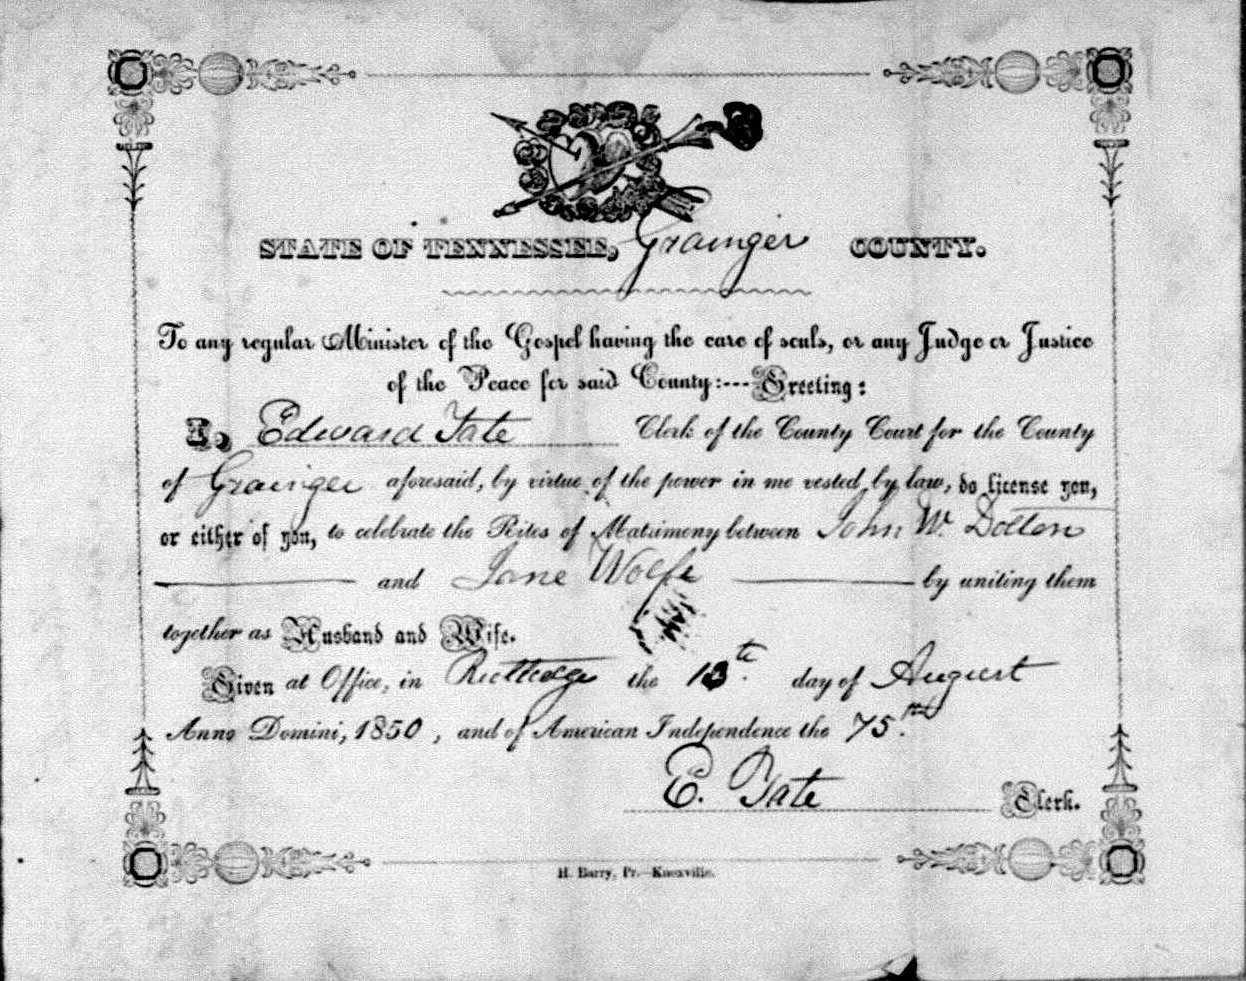 STATE OF TENNESSEE, Grainger COUNTY.
To any regular Minister of the Gospel having the care of souls, or any Judge or Justice
of the Peace for said County:---Greeting:
I, Edward Tate Clerk of the County Court for the County
of Grainger aforesaid, by virtue of the power in me vested by law, do license you,
or either of you, to celebrate the Rites of Matrimony between John W. Dolton
and Jane Wolfe by uniting them
together as Husband and Wife.
Given at Office, in Rutledge the 13th. day of August
Anno Domini, 1850, and of American Independence the 75.
E. Tate Clerk.
H. Barry, Pr.—Knoxville.